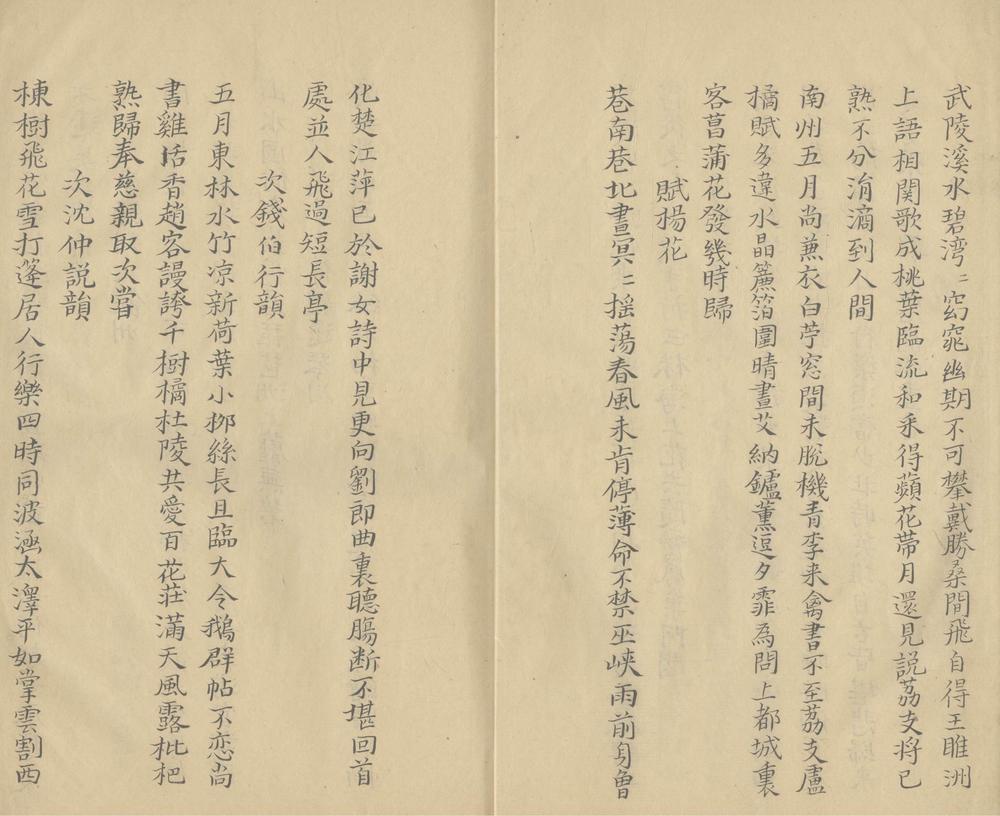 武陵溪水碧湾〻窈窕幽期不可攀戴勝桑間飛自得王雎洲
上語相関歌成桃葉臨流和采得蘋花帯月還見説荔支将已
熟不分涓滴到人間
南州五月尚兼衣白苧窓間未脫機青李来禽書不至荔支盧
橘賦多違水晶簾箔圍晴晝艾納鑪薫逗夕霏為問上都城裏
客菖蒲花發幾時歸
賦楊花
巷南巷北晝冥〻揺蕩春風未肯停薄命不禁巫峽雨前身曾
化楚江萍已於謝女詩中見更向劉郎曲裏聽腸断不堪回首
處並人飛過短長亭
次錢伯行韻
五月東林水竹凉新荷葉小栁絲長且臨大令鵝群帖不恋尚
書雞舌香趙客謾誇千樹橘杜陵共愛百花莊滿天風露枇杷
熟歸奉慈親取次嘗
次沈仲説韻
棟樹飛花雪打篷居人行樂四時同波涵太澤平如掌雲割西